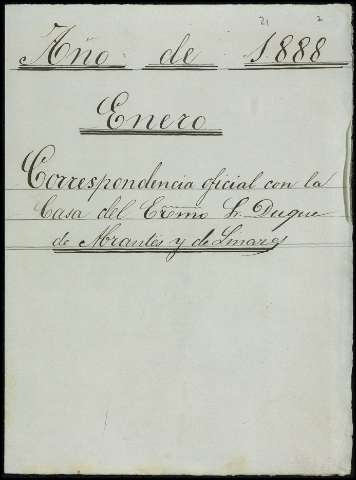 21 2
Año de 1888
Enero
Correspondencia oficial con la
Casa del Excmo Sr. Duque
de Abrantes y de Linares